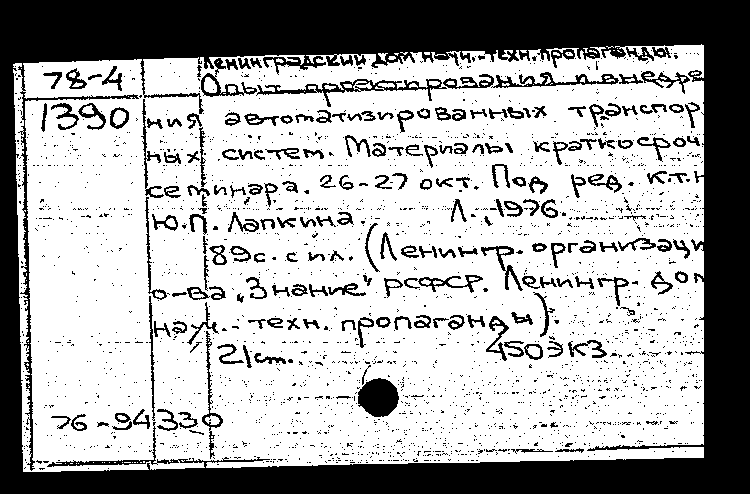 Ленинградский дом науч.-техн. пропаганды.
78-4
Опыт проектирования и внедре
1390
ния автоматизированных транспор
ных систем. Материалы краткосроч
семинара. 26-27 окт. Под ред. к.т.н
Ю.П. Лапкина. Л., 1976.
89с. с ил. (Ленингр. организаци
о-ва "Знание" РСФСР. Ленингр. дом
науч.-техн. пропаганды).
21см. 450экз.
76-94330